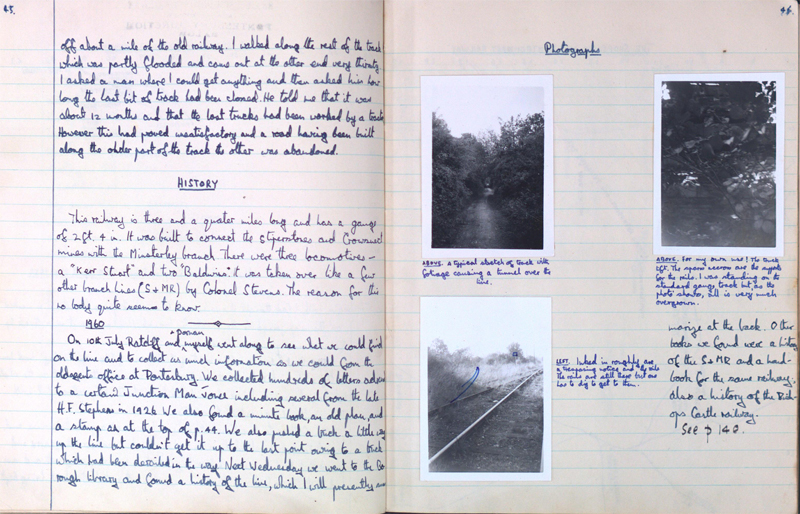 45.
off about a mile of the old railway. I walked along the rest of the track
which was partly flooded and came out at the other end very thirsty.
I asked a man where I could get anything and then asked him how
long the last bit of track had been closed. He told me that it was
about 12 months and that the last trucks had been worked by a truck
However this had proved unsatisfactory and a road having been built
along the older part of the track the other was abandoned.
HISTORY
This railway is three and a quater miles long and has a gauge
of 2ft. 4 in. It was built to connect the Stiperstones and Crowsnest
mines with the Minsterley branch There were three locomotives -
a "Kerr Stuart" and two "Baldwins". it was taken over like a few
other branch lines (S+MR) by Colonel Stevens. The reason for this
no body quite seems to know.
1960
On 10th July Ratcliff and myself went along to see what we could find
on the line and to collect as much information as we could from the
office at Pontesbury. We collected hundreds of letters
to a certain Junction Man including several from the late
H.F. Stephens in 1926 We also found a minute book, an old plan, and
a stamp as at the top of p. 44. We also pushed a truck a little way
up the line but couldn't get it up to the last point owing to a truck
which had been derailed in the way. Next Wednesday we went to the Bo-
rough Library and found a history of the line, which I will presently
46.
Photographs
ABOVE. A typical sketch of track with
foliage causing a tunnel over the
line.
ABOVE. For my own use! The truck
left. The arrows are the
for the rails. I was standing on the
standard gauge track but, as the
photo shows, all is very much
overgrown.
LEFT. Inked in roughly are
a trespassing notice and the rails
the rails are still there but one
has to dig to get to them.
marize at the back. Other
books we found were a history
of the S+MR and a hand-
book for the same railway.
also a history of the Bish-
ops Castle railway.
See p 140.